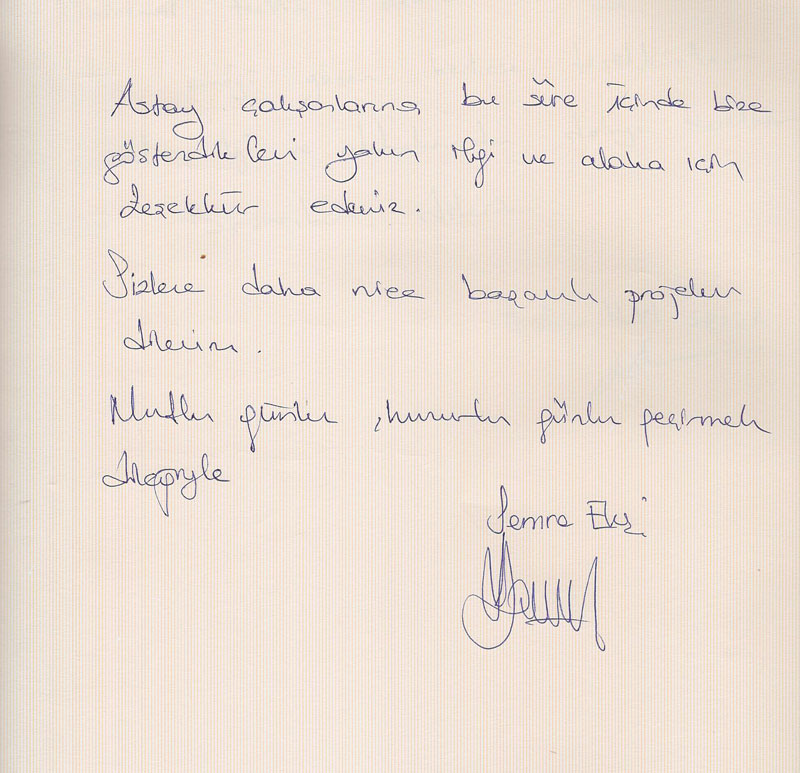 Astay çalışanlarına bu süre içinde bize
gösterdikleri yakın ilgi ve alaka için
teşekkür ederiz.
Sizlere daha nice başarılı projeler
dilerim.
Mutlu günler, huzurlu günler geçirmek
dileğiyle
Semra Ekşi